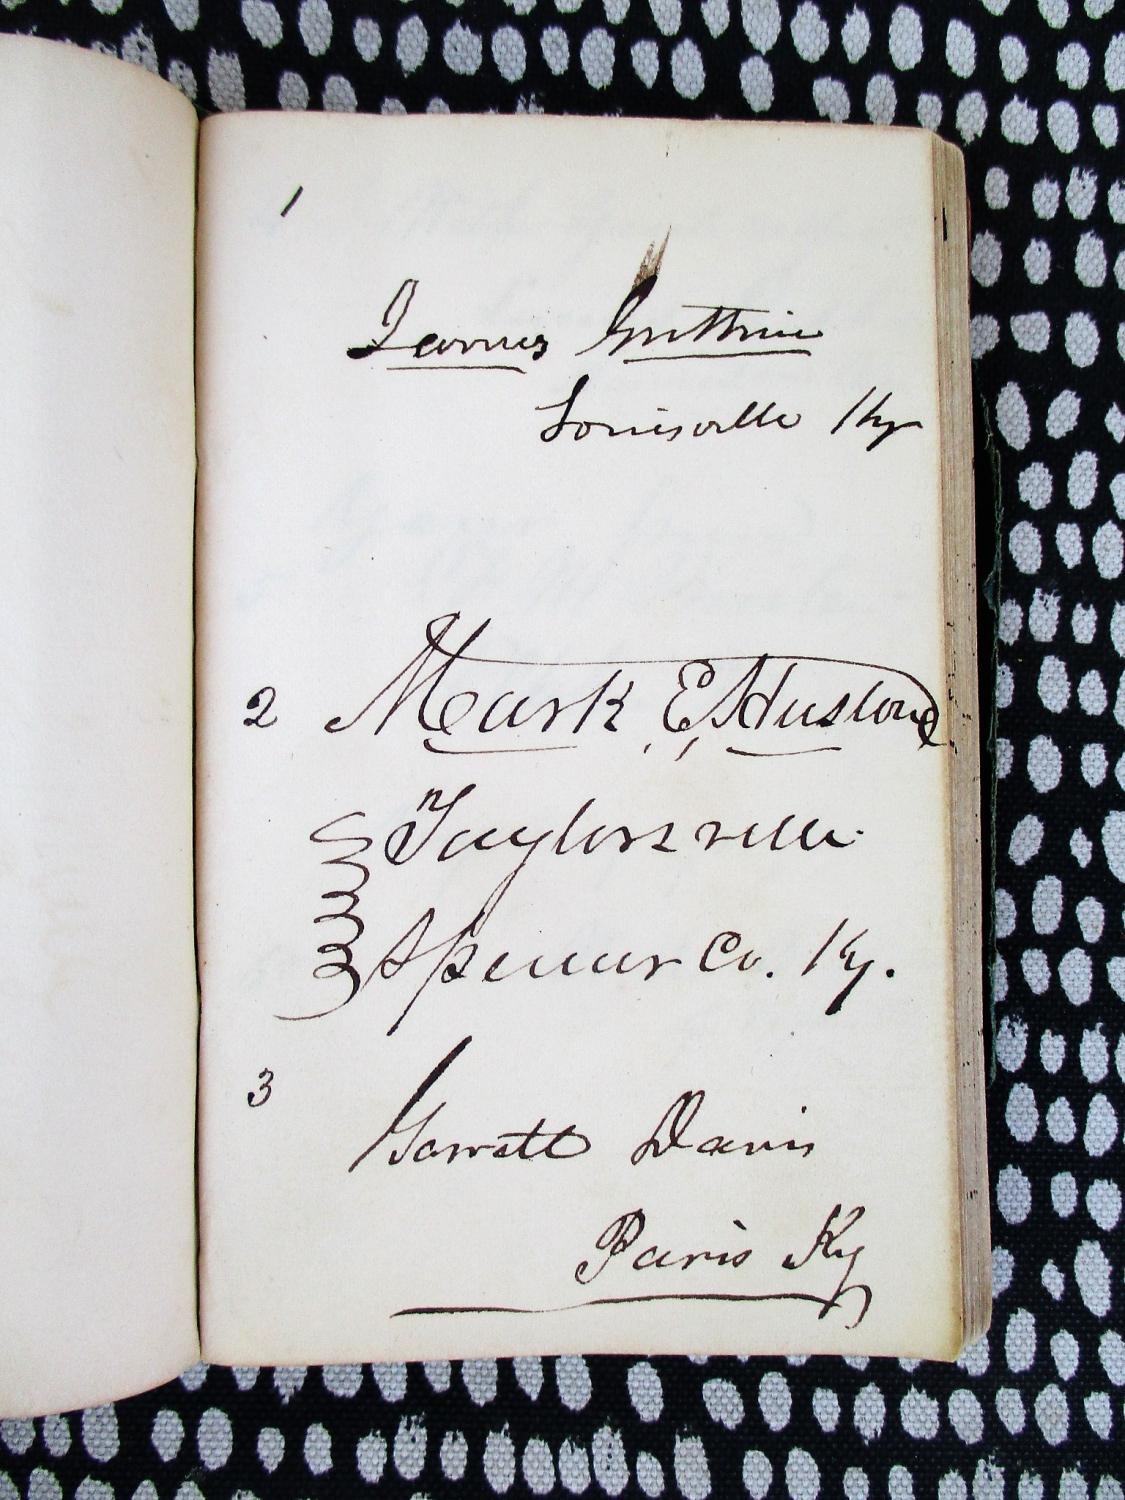 1
James Guthrie
Louisville Ky
2 Mark E. Huston
Taylorsville
Spencer Co. Ky.
3
Garrett Davis
Paris Ky